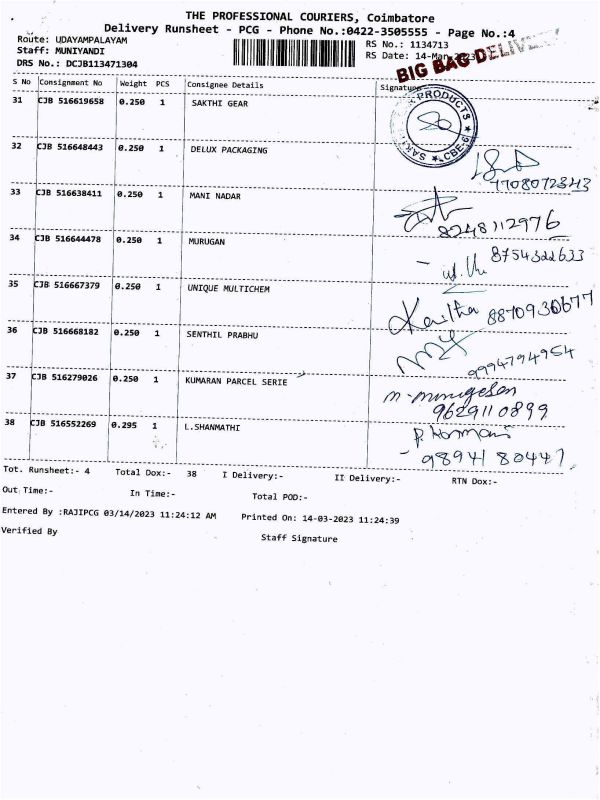 THE PROFESSIONAL COURIERS, Coimbatore
Delivery Runsheet - PCG - Phone No.:0422-3505555 - Page No.:4
Route: UDAYAMPALAYAM
RS No.: 1134713
Staff: MUNIYANDI
RS Date: 14-Mar-2023
BIG BAG DELIVERY
DRS No.: DCJB113471304
S No Consignment No Weight PCS Consignee Details Signature
31 CJB 516619658 0.250 1 SAKTHI GEAR
PRODUCTS ★ CBE-6 ★ SAKTHI
32 CJB 516648443 0.250 1 DELUX PACKAGING
7708072343
33 CJB 516638411 0.250 1 MANI NADAR
8248112976
34 CJB 516644478 0.250 1 MURUGAN
8754322633
35 CJB 516667379 0.250 1 UNIQUE MULTICHEM
Kavitha 8870930677
36 CJB 516668182 0.250 1 SENTHIL PRABHU
9994794954
37 CJB 516279026 0.250 1 KUMARAN PARCEL SERIE
m-murugesan
9629110899
38 CJB 516552269 0.295 1 L.SHANMATHI
9894180447
Tot. Runsheet:- 4 Total Dox:- 38 I Delivery:- II Delivery:- RTN Dox:-
Out Time:- In Time:- Total POD:-
Entered By :RAJIPCG 03/14/2023 11:24:12 AM Printed On: 14-03-2023 11:24:39
Verified By Staff Signature